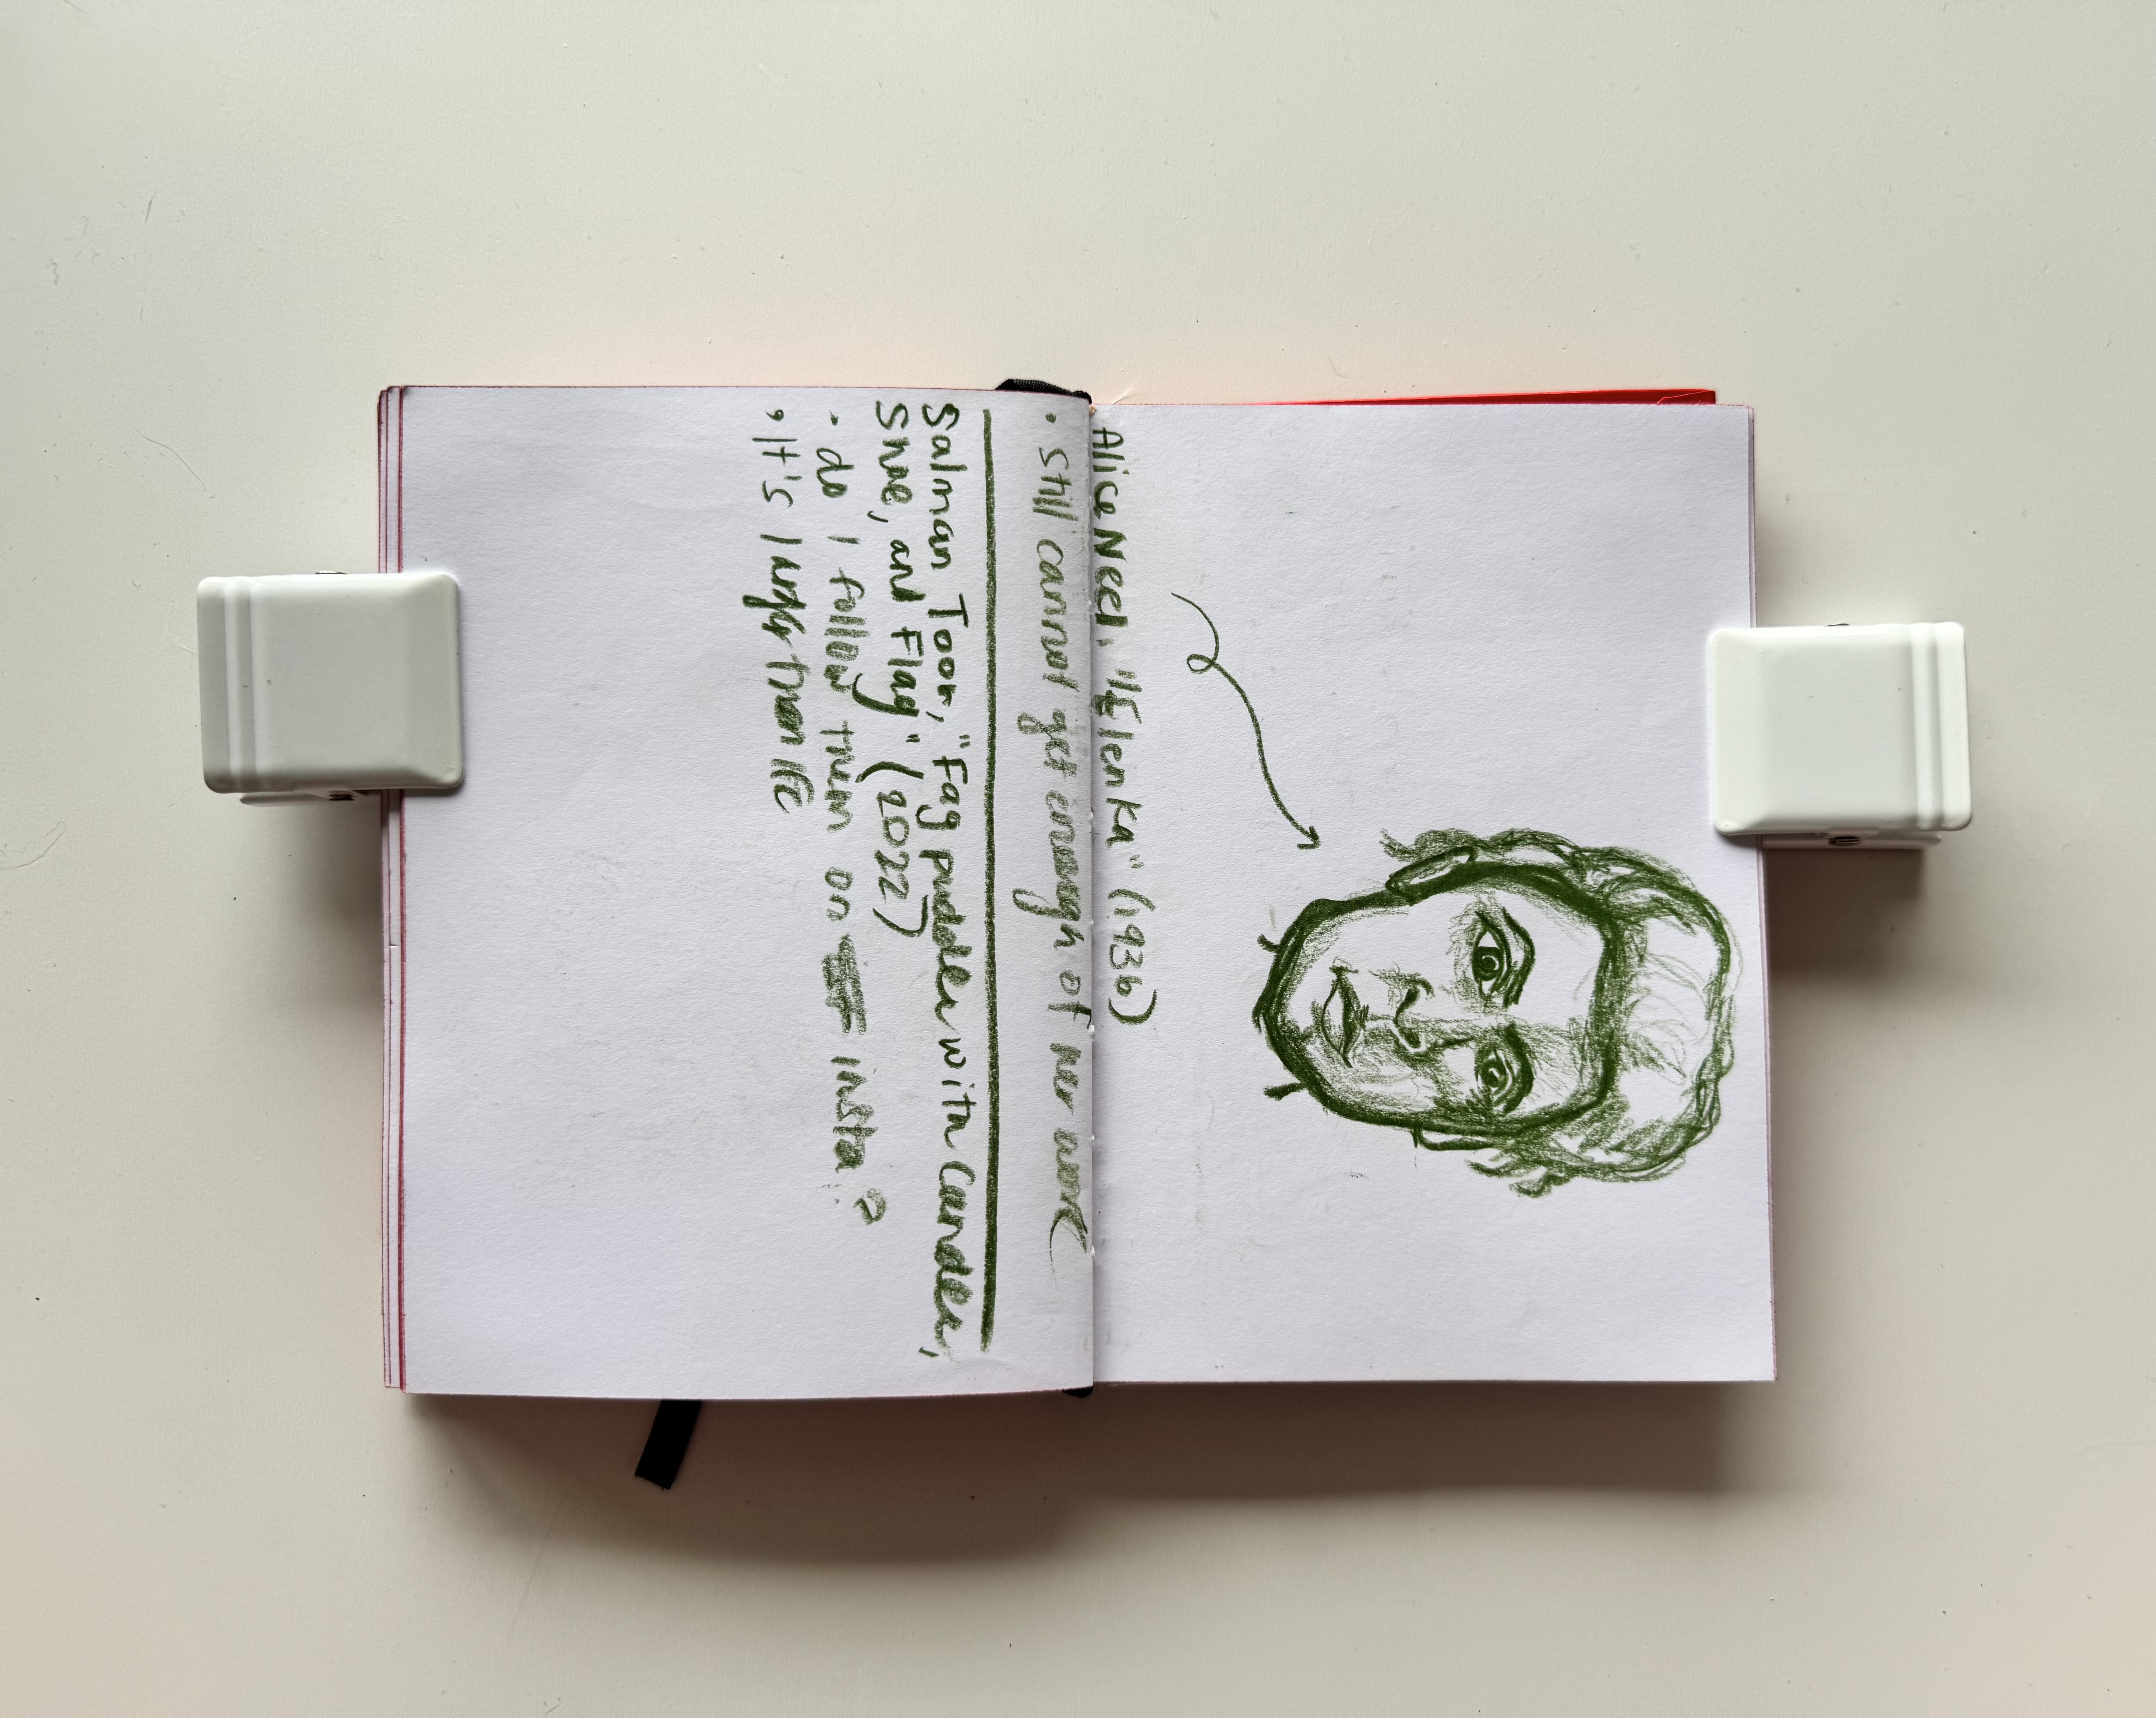 Alice Neel, "Elenka" (1936)
• Still cannot get enough of her work
Salman Toor, "Fag puddle with Candle,
Shoe, and Flag" (2022)
• do I follow them on insta?
• It's larger than life